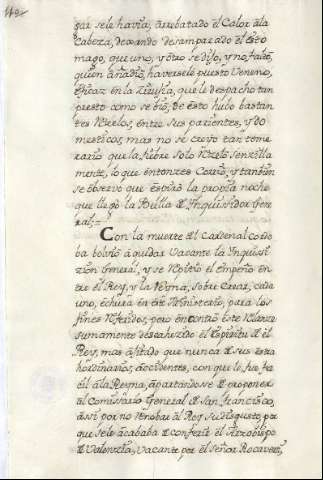 gar se le havia, arrebatado el Calor àla
Cabeza, dexando desamparado el Esto
mago, que uno, y otro se dijo, y no, faltò,
quien añadiò, haversele puesto Veneno,
eficaz en la que le despachò tan
presto como se diò, de esto hubo bastan
tes entre sus parientes, y do
mesticos, mas no se creyò tan teme
rario que la fiebre solo
mente, lo que entonzes Corriò, y tambien
se observò que espirò la propia noche
que llegò la Bulla de Inquissidor Gene
ral;=
Con la muerte del Cardenal Cordo
ba bolviò à quedar Vacante la Inquisi
zion General, y se el empeño en
tre el Rey, y la Reyna, sobre Crear, cada
uno, echura en este Ministerio, para los
fines Referidos, pero encontrò este
sumamente descaezido el espiritu de el
Rey, mas ajitado que nunca de sus estra
hordinarios, àccidentes, con que le fue fa
cil à la Reyna, àpartandose de proponer
al Comissario General de San Francisco,
àssi por no Renobar al Rey su disgusto, por
que se le àcababa de conferir el Arzobispo
de Valenzia, Vacante por el Señor Rocaverti,